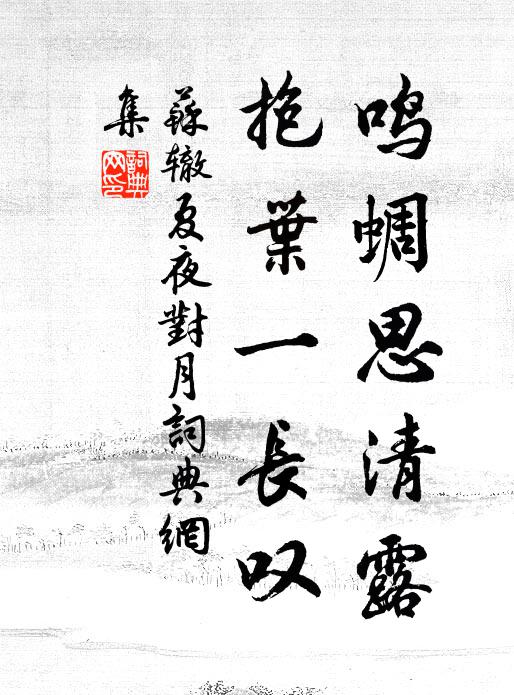 鸣蜩思清露
抱葉一長叹
蘇辙夏夜對月詞典網
集
詞典网印